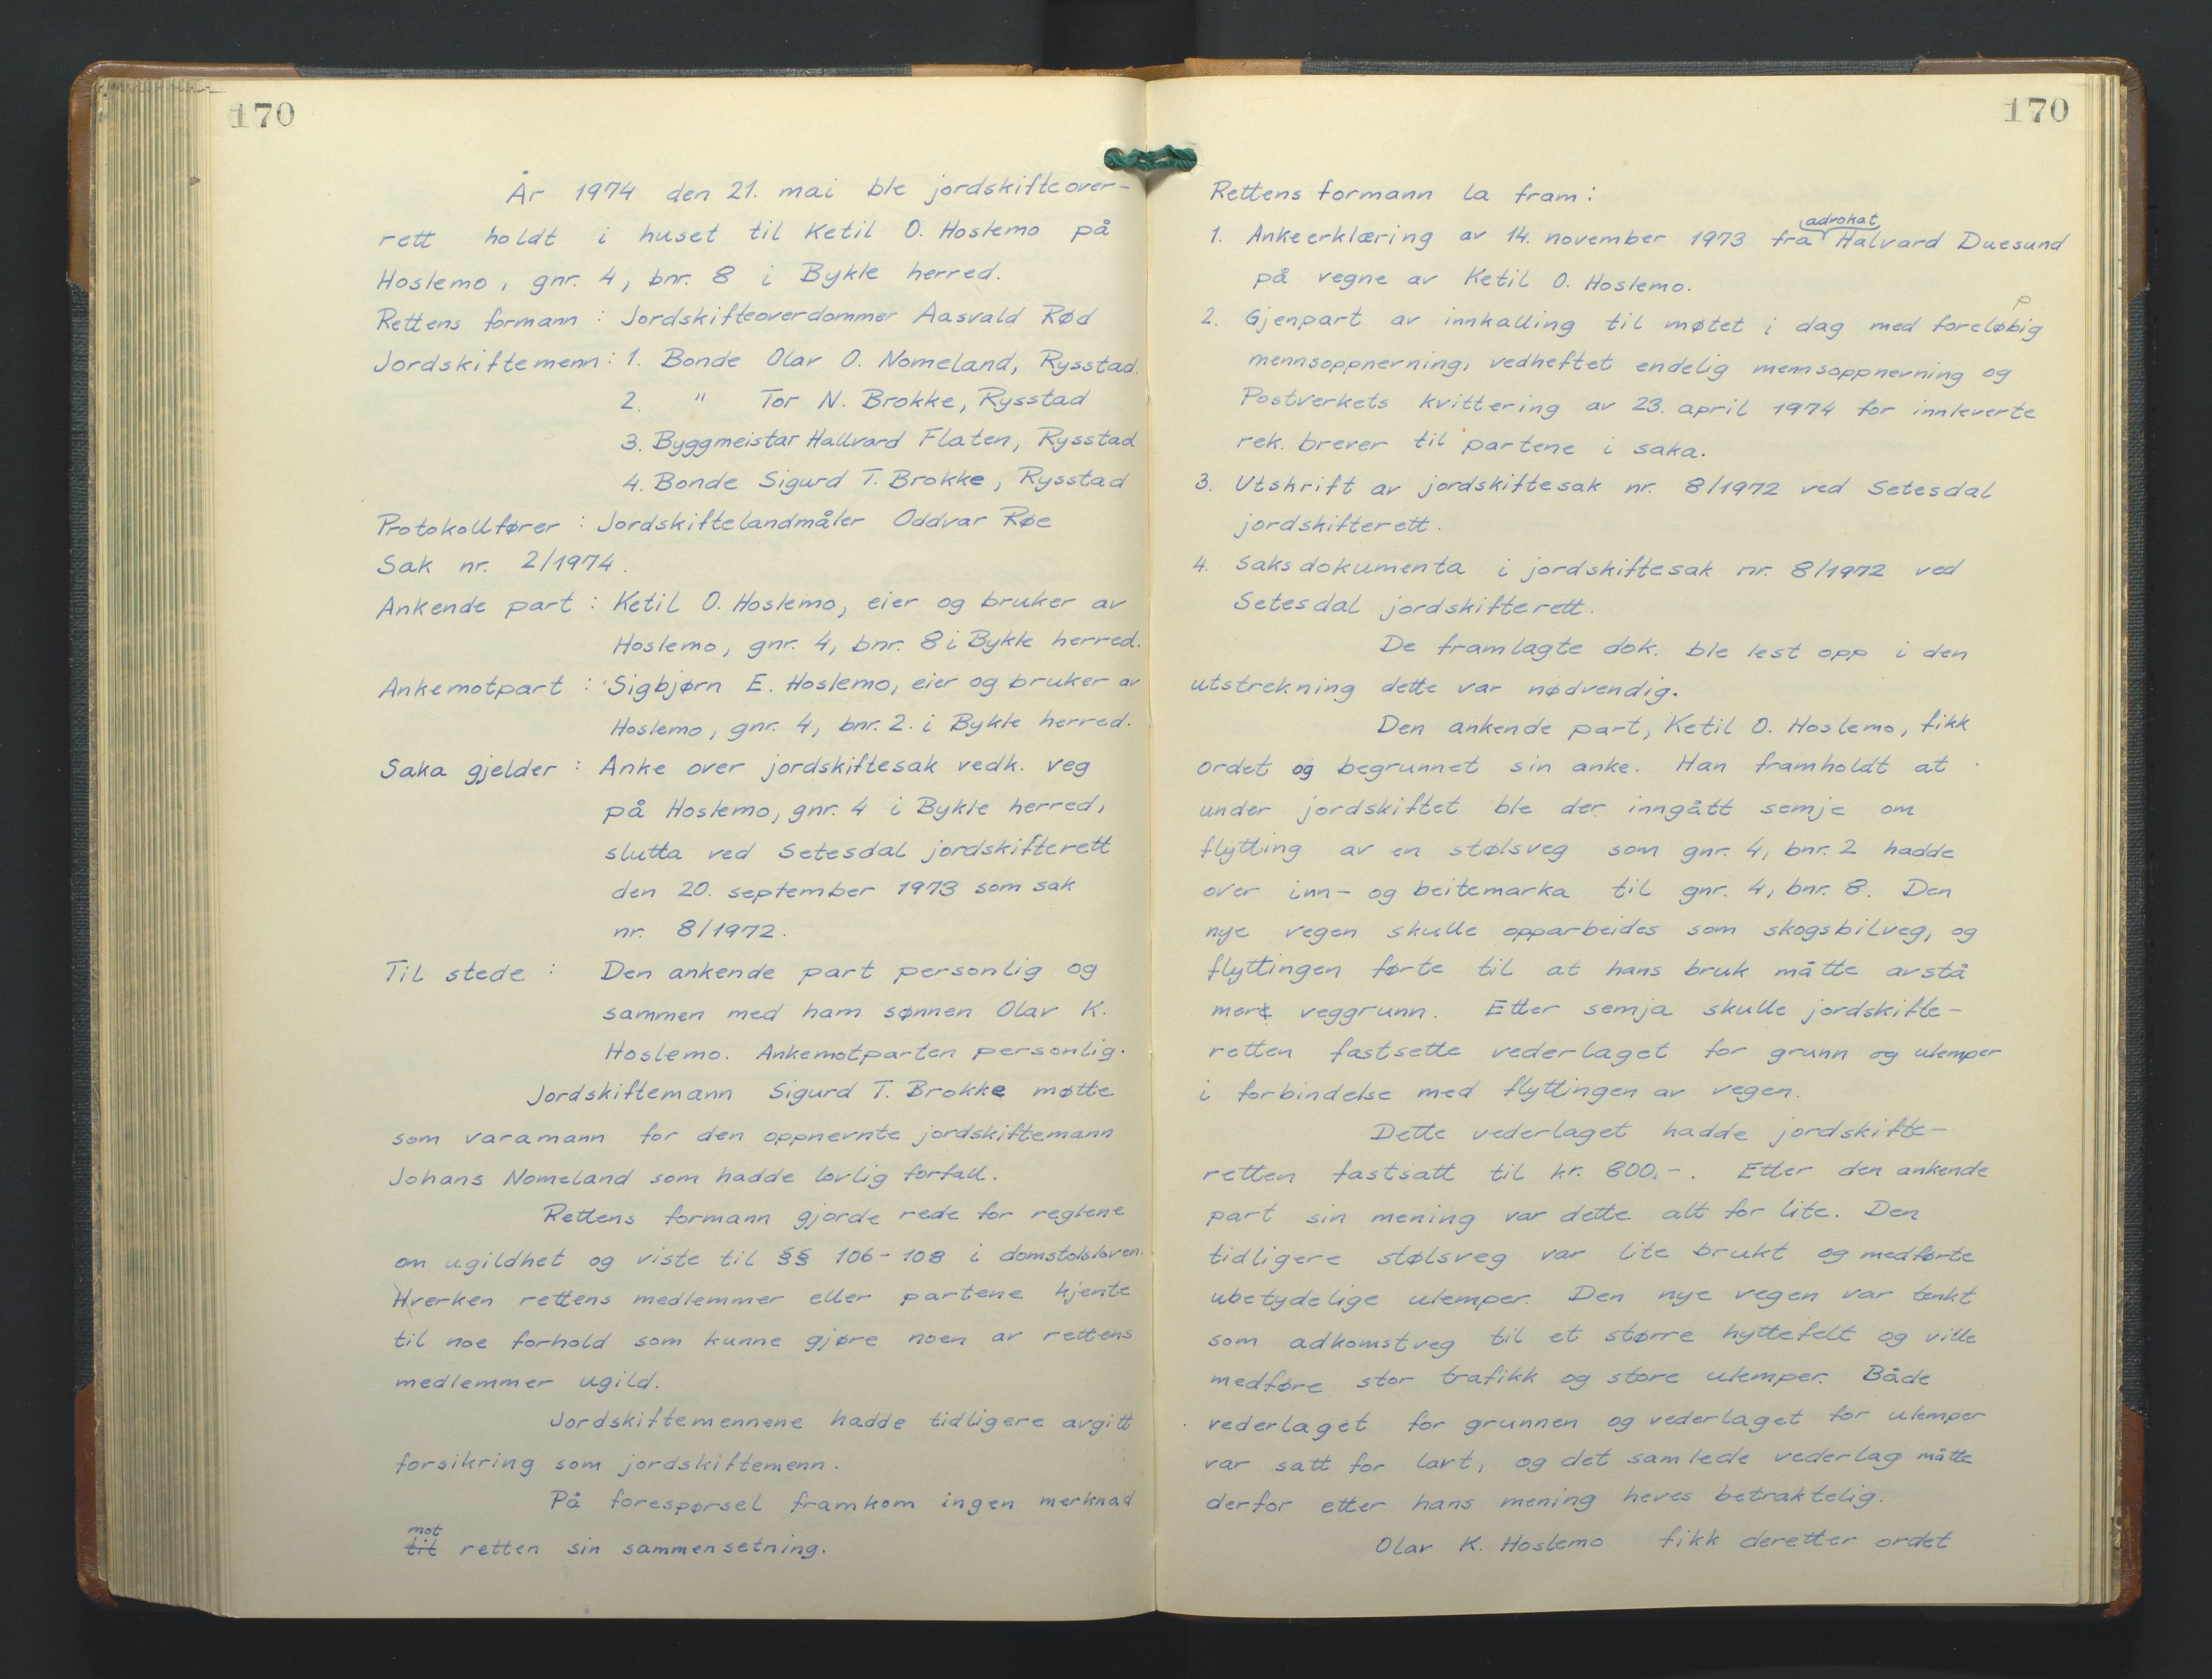 170
År 1974 den 21. mai ble jordskifteover-
rett holdt i huset til Ketil O. Hoslemo på
Hoslemo, gnr. 4, bnr. 8 i Bykle herred.
Rettens formann : Jordskifteoverdommer Aasvald Rød
Jordskiftemenn : 1. Bonde Olav O. Nomeland, Rysstad.
2. " Tor N. Brokke, Rysstad
3. Byggmeistar Hallvard Flaten, Rysstad
4. Bonde Sigurd T. Brokke, Rysstad
Protokollfører : Jordskiftelandmåler Oddvar Røe
Sak nr. 2/1974.
Ankende part : Ketil O. Hoslemo, eier og bruker av
Hoslemo, gnr. 4, bnr. 8 i Bykle herred.
Ankemotpart : Sigbjørn E. Hoslemo, eier og bruker av
Hoslemo, gnr. 4, bnr. 2. i Bykle herred.
Saka gjelder : Anke over jordskiftesak vedk. veg
på Hoslemo, gnr. 4 i Bykle herred,
slutta ved Setesdal jordskifterett
den 20. september 1973 som sak
nr. 8/1972.
Til stede : Den ankende part personlig og
sammen med ham sønnen Olav K.
Hoslemo. Ankemotparten personlig.
Jordskiftemann Sigurd T. Brokke møtte
som varamann for den oppnevnte jordskiftemann
Johans Nomeland som hadde lovlig forfall.
Rettens formann gjorde rede for reglene
om ugildhet og viste til §§ 106-108 i domstolsloven.
Hverken rettens medlemmer eller partene kjente
til noe forhold som kunne gjøre noen av rettens
medlemmer ugild.
Jordskiftemennene hadde tidligere avgitt
forsikring som jordskiftemenn.
På forespørsel framkom ingen merknad
mot
til retten sin sammensetning.
170
Rettens formann la fram:
advokat
1. Ankeerklæring av 14. november 1973 fra Halvard Duesund
på vegne av Ketil O. Hoslemo.
p
2. Gjenpart av innkalling til møtet i dag med foreløbig
mennsoppnevning, vedheftet endelig mennsoppnevning og
Postverkets kvittering av 23. april 1974 for innleverte
rek. brever til partene i saka.
3. Utskrift av jordskiftesak nr. 8/1972 ved Setesdal
jordskifterett.
4. Saksdokumenta i jordskiftesak nr. 8/1972 ved
Setesdal jordskifterett.
De framlagte dok. ble lest opp i den
utstrekning dette var nødvendig.
Den ankende part, Ketil O. Hoslemo, fikk
ordet og begrunnet sin anke. Han framholdt at
under jordskiftet ble der inngått semje om
flytting av en stølsveg som gnr. 4, bnr. 2 hadde
over inn- og beitemarka til gnr. 4, bnr. 8. Den
nye vegen skulle opparbeides som skogsbilveg, og
flyttingen førte til at hans bruk måtte avstå
mere veggrunn. Etter semja skulle jordskifte-
retten fastsette vederlaget for grunn og ulemper
i forbindelse med flyttingen av vegen.
Dette vederlaget hadde jordskifte-
retten fastsatt til kr. 800,-. Etter den ankende
part sin mening var dette alt for lite. Den
tidligere stølsveg var lite brukt og medførte
ubetydelige ulemper. Den nye vegen var tenkt
som adkomstveg til et større hyttefelt og ville
medføre stor trafikk og store ulemper. Både
vederlaget for grunnen og vederlaget for ulemper
var satt for lavt, og det samlede vederlag måtte
derfor etter hans mening heves betraktelig.
Olav K. Hoslemo fikk deretter ordet